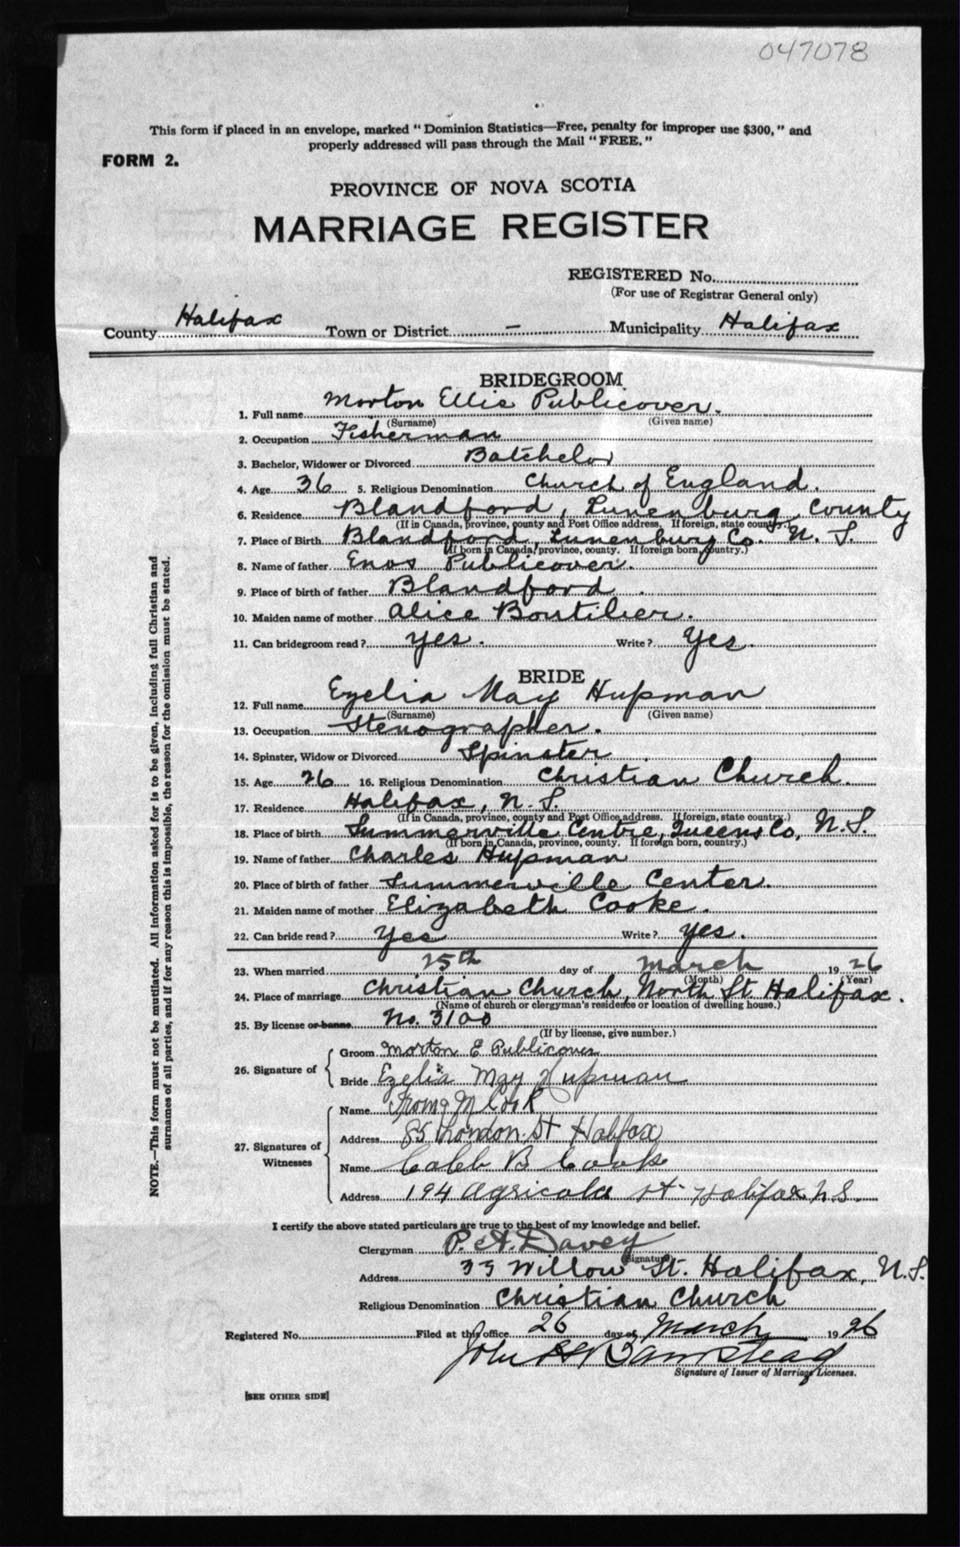 047078
This form if placed in an envelope, marked "Dominion Statistics—Free, penalty for improper use $300," and
properly addressed will pass through the Mail "FREE."
FORM 2.
PROVINCE OF NOVA SCOTIA
MARRIAGE REGISTER
REGISTERED No.
(For use of Registrar General only)
County Halifax Town or District — Municipality Halifax
BRIDEGROOM
1. Full name Morton Ellis Publicover.
(Surname) (Given name)
2. Occupation Fisherman
3. Bachelor, Widower or Divorced Batchelor
4. Age 36 5. Religious Denomination Church of England.
6. Residence Blandford, Lunenburg County
(If in Canada, province, county and Post Office address. If foreign, state country.)
7. Place of Birth Blandford, Lunenburg Co. N.S.
(If born in Canada, province, county. If foreign born, country.)
8. Name of father Enos Publicover.
9. Place of birth of father Blandford.
10. Maiden name of mother Alice Boutilier.
11. Can bridegroom read? yes. Write? Yes.
BRIDE
12. Full name Ezelia May Hupman
(Surname) (Given name)
13. Occupation Stenographer.
14. Spinster, Widow or Divorced Spinster
15. Age 26 16. Religious Denomination Christian Church.
17. Residence Halifax, N.S.
(If in Canada, province, county and Post Office address. If foreign, state country.)
18. Place of birth Summerville Centre, Queens Co, N.S.
(If born in Canada, province, county. If foreign born, country.)
19. Name of father Charles Hupman
20. Place of birth of father Summerville Center.
21. Maiden name of mother Elizabeth Cooke.
22. Can bride read? Yes Write? yes.
23. When married 25th day of March 1926
(Month) (Year)
24. Place of marriage Christian Church, North St. Halifax.
(Name of church or clergyman's residence or location of dwelling house.)
25. By license or banns No. 3100
(If by license, give number.)
26. Signature of
Groom Morton E Publicover
Bride Ezelia May Hupman
27. Signatures of Witnesses
Name M Cook
Address 85 London St Halifax
Name Caleb B Cook
Address 194 Agricola St. Halifax N.S.
I certify the above stated particulars are true to the best of my knowledge and belief.
Clergyman P. A. Davey
(Signature)
Address 33 Willow St. Halifax, N.S.
Religious Denomination Christian Church
Registered No. Filed at this office 26 day of March 1926
John Barnstead
Signature of Issuer of Marriage Licenses.
[SEE OTHER SIDE]
NOTE.—This form must not be mutilated. All information asked for is to be given, including full Christian and
surnames of all parties, and if for any reason this is impossible, the reason for the omission must be stated.